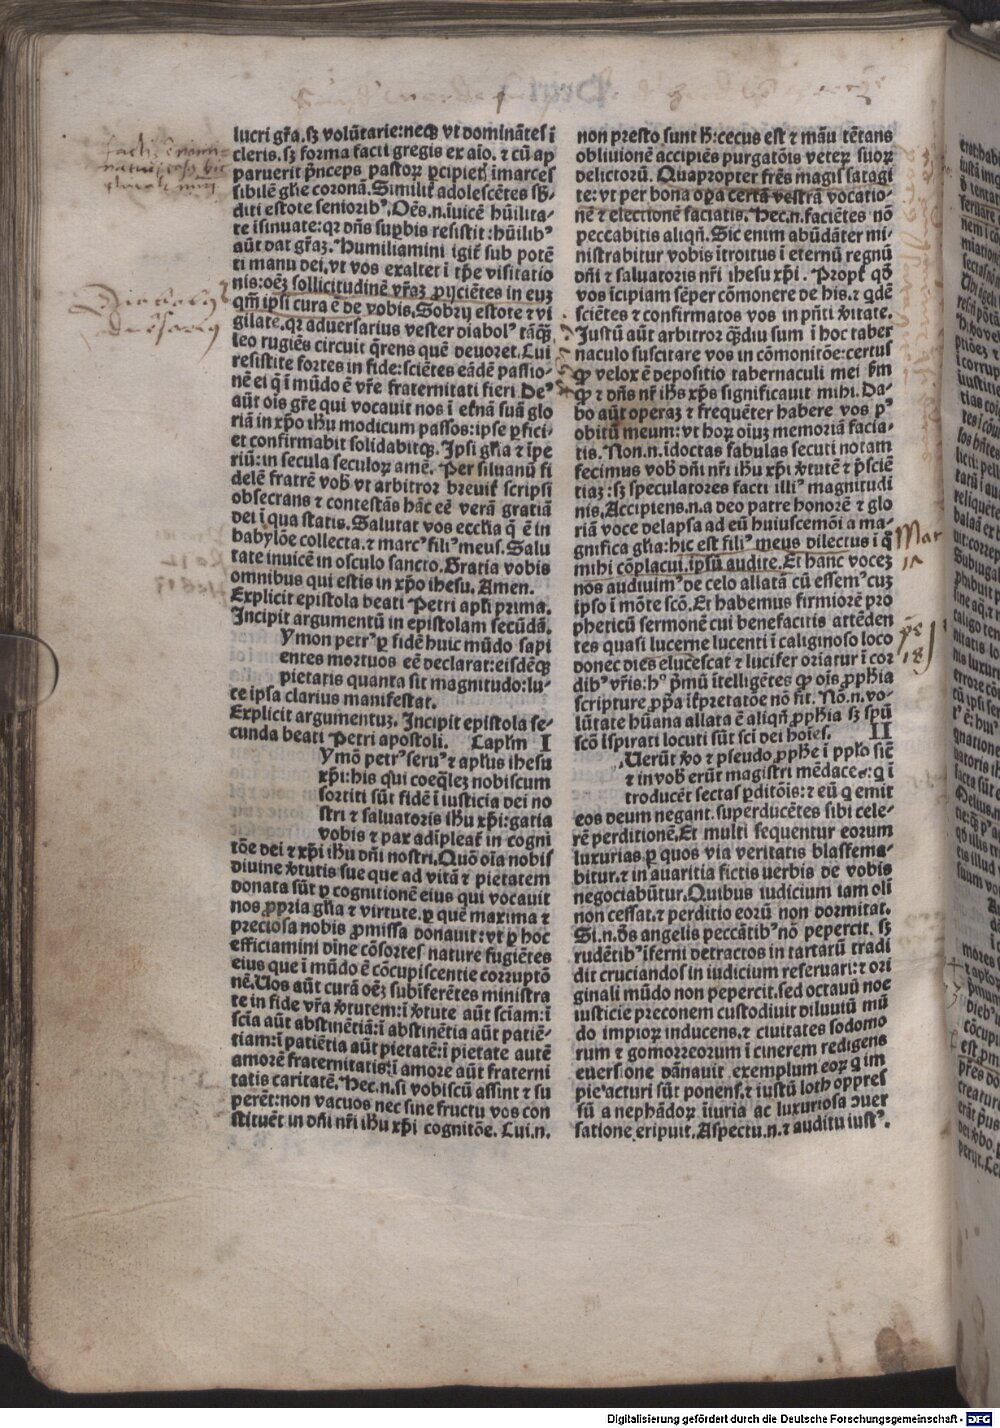 lucri gr̄a.sꝫ volūtarie:necꝫ vt dominātes ī
cleris.sꝫ forma facti gregis ex aīo.⁊ cū ap
paruerit p̄nceps pastoꝝ ꝑcipietꝭ īmarces
sibilē gl̄ie coronā. Similit̄ adolescētes sb̄
diti estote seniorib⁹. Oēs.n.īuicē hūilita-
te īsinuate:qꝛ dn̄s suꝑbis resistit:hūilib⁹
aūt dat gr̄aꝫ. Humiliamini igit̄ sub potē
ti manu dei.vt vos exaltet ī tꝑe visitatio
nis:oēꝫ sollicitudinē vr̄aꝫ ꝓijciētes in euꝫ
qm̄ ipsi cura ē de vobis. Sobrij estote ⁊ vi
gilate.qꝛ aduersarius vester diabol⁹ tāqꝫ
leo rugiēs circuit q̄rens quē deuoret. Cui
resistite fortes in fide:sciētes eādē passio-
nē ei q̄ ī mūdo ē vr̄e fraternitati fieri De⁹
aūt ois gr̄e qui vocauit nos ī et̄nā suā glo
riā in xp̄o ih̄u modicum passos:ipse ꝑfici-
et confirmabit solidabitqꝫ. Ipsi gl̄ia ⁊ īpe
riū:in secula seculoꝝ amē. Per siluanū fi
delē fratrē vob̄ vt arbitror breuit̄ scripsi
obsecrans ⁊ contestās hāc eē verā gratiā
dei ī qua statis. Salutat vos eccl̄ia q̄ ē in
babylōe collecta.⁊ marc⁹ fili⁹ meus. Salu
tate inuicē in osculo sancto. Gratia vobis
omnibus qui estis in xp̄o ihesu. Amen.
Explicit epistola beati Petri apl̄i prima.
Incipit argumentū in epistolam secūdā.
Ymon petr⁹ ꝑ fidē huic mūdo sapi
entes mortuos eē declarat:eisdēqꝫ
pietatis quanta sit magnitudo:lu-
ce ipsa clarius manifestat.
Explicit argumentuꝫ. Incipit epistola se-
cunda beati Petri apostoli. Capl̄m I
Ymō petr⁹ seru⁹ ⁊ apl̄us ihesu
xp̄i:his qui coeq̄leꝫ nobiscum
sortiti sūt fidē ī iusticia dei no
stri ⁊ saluatoris ih̄u xp̄i:gatia
vobis ⁊ pax adīpleat̄ in cogni
tōe dei ⁊ xp̄i ih̄u dn̄i nostri. Quō oīa nobis
diuine ꝟtutis sue que ad vitā ⁊ pietatem
donata sūt ꝑ cognitionē eius qui vocauit
nos ꝓpria gl̄ia ⁊ virtute.ꝑ quē maxima ⁊
preciosa nobis ꝓmissa donauit:vt ꝑ hoc
efficiamini diuīe cōsortes nature fugiētes
eius que ī mūdo ē cōcupiscentie corruptō
nē. Uos aūt curā oēꝫ subīferētes ministra
te in fide vr̄a ꝟtutem:ī ꝟtute aūt sciam:ī
scīa aūt abstinētiā:ī abstinētia aūt patiē-
tiam:ī patiētia aūt pietatē:ī pietate autē
amorē fraternitatis:ī amore aūt fraterni
tatis caritatē. Hec.n.si vobiscū assint ⁊ su
perēt:non vacuos nec sine fructu vos con
stituēt in dn̄i nr̄i ih̄u xp̄i cognitōe. Cui.n.
non presto sunt h̄:cecus est ⁊ māu tētans
obliuionē accipiēs purgatōis veteꝝ suoꝝ
delictorū. Quapropter fr̄es magis satagi
te:vt per bona oꝑa certā vestrā vocatio-
nē ⁊ electionē faciatis. Hec.n.faciētes nō
peccabitis aliqn̄. Sic enim abūdāter mi-
nistrabitur vobis ītroitus ī eternū regnū
dn̄i ⁊ saluatoris nr̄i ihesu xp̄i. Propt̄ qd̄
vos īcipiam sēper cōmonere de his.⁊ qdē
sciētes ⁊ confirmatos vos in pn̄ti ꝟitate.
Justū aūt arbitror qꝫdiu sum ī hoc taber
naculo suscitare vos in cōmonitōe:certus
qꝙ velox ē depositio tabernaculi mei ẜm
qꝙ ⁊ dn̄s nr̄ ih̄s xp̄s significauit mihi. Da-
bo aūt operaꝫ ⁊ frequēter habere vos p⁹
obitū meum:vt hoꝝ oīuꝫ memoriā facia-
tis. Non.n.īdoctas fabulas secuti notam
fecimus vob̄ dn̄i nr̄i ih̄u xp̄i ꝟtutē ⁊ p̄sciē
tiaꝫ:sꝫ speculatores facti illi⁹ magnitudi
nis. Accipiens.n.a deo patre honorē ⁊ glo
riā voce delapsa ad eū huiuscemōi a ma-
gnifica gl̄ia:hic est fili⁹ meus dilectus ī q̄
mihi cōplacui.ipsū audite. Et hanc voceꝫ
nos audiuim⁹ de celo allatā cū essem⁹ cuꝫ
ipso ī mōte scō. Et habemus firmiorē pro
pheticū sermonē cui benefacitis attēden
tes quasi lucerne lucenti ī caliginoso loco
donec dies elucescat ⁊ lucifer oriatur ī cor
dib⁹ vr̄is:h⁹ p̄mū ītelligētes qꝙ oīs ꝓph̄ia
scripture ꝓpͥa īt̄pretatōe nō fit. Nō.n.vo-
lūtate hūana allata ē aliqn̄ ꝓph̄ia sꝫ spū
scō īspirati locuti sūt sci dei hoīes. II
Uerūt ꝟo ⁊ pseudo ꝓph̄e ī ppl̄o sic̄
⁊ in vob̄ erūt magistri mēdaces:q̄ ī
troducēt sectas ꝑditōis:⁊ eū q̄ emit
eos deum negant.superducētes sibi cele-
rē perditionē. Et multi sequentur eorum
luxurias ꝑ quos via veritatis blasfema-
bitur.⁊ in auaritia fictis uerbis de vobis
negociabūtur. Quibus iudicium iam olī
non cessat.⁊ perditio eorū non dormitat.
Si.n.dē̄s angelis peccātib⁹ nō pepercit.sꝫ
rudētib⁹ īferni detractos in tartarū tradi
dit cruciandos in iudicium reseruari:⁊ ori
ginali mūdo non pepercit.sed octauū noe
iusticie preconem custodiuit diluuiū mū
do impioꝝ inducens.⁊ ciuitates sodomo
rum ⁊ gomorreorum ī cinerem redigens
euersione dānauit.exemplum eoꝝ q̄ im
pie acturi sūt ponens.⁊ iustū loth oppres
sū a nephādoꝝ īiuria ac luxuriosa ꝯuer
satione eripuit. Aspectu.n.⁊ auditu iust⁹.
Mar
Digitalisierung gefördert durch die Deutsche Forschungsgemeinschaft - DFG